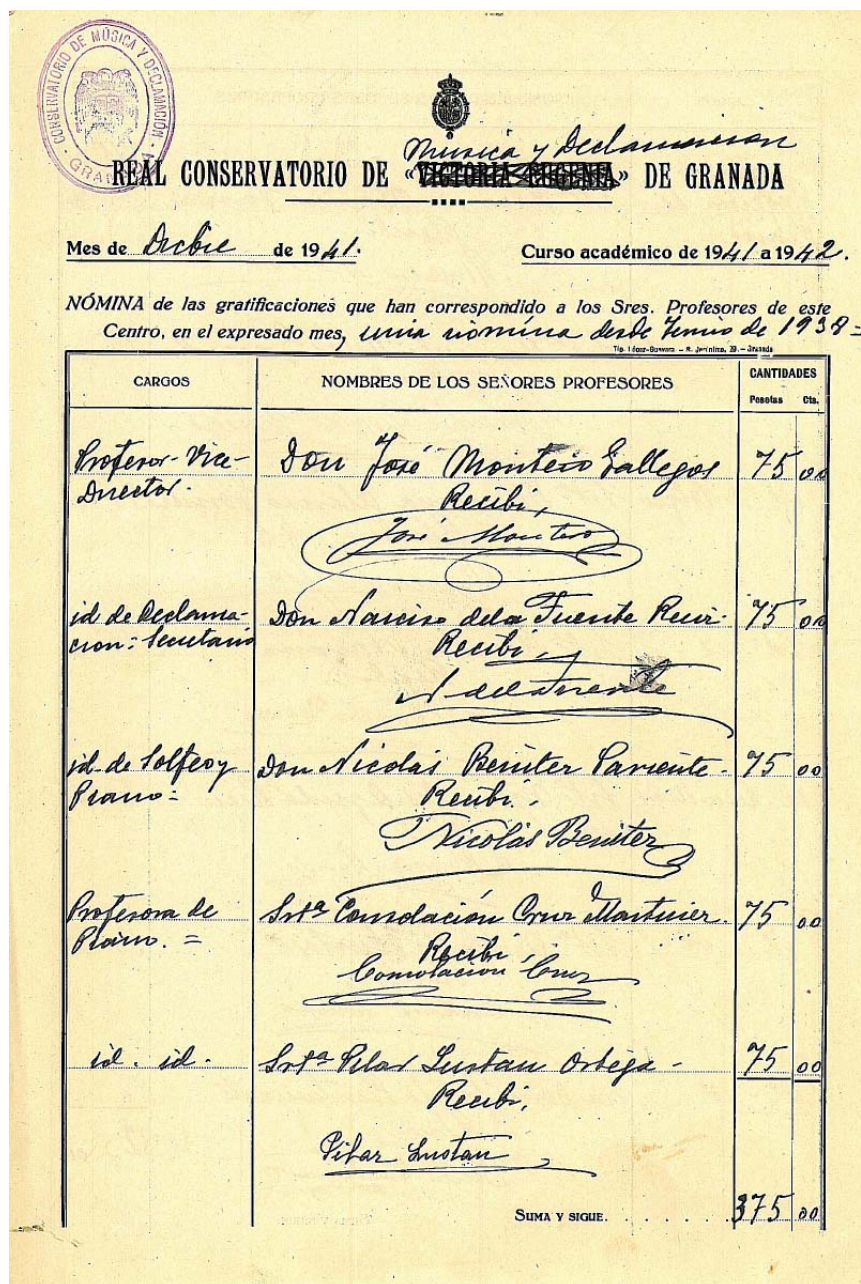 CONSERVATORIO DE MÚSICA Y DECLAMACIÓN · GRANADA
Música y Declamacion
REAL CONSERVATORIO DE «VICTORIA EUGENIA» DE GRANADA
Mes de Dicbre de 1941. Curso académico de 1941 a 1942.
NÓMINA de las gratificaciones que han correspondido a los Sres. Profesores de este
Centro, en el expresado mes, nómina desde Junio de 1938=
Tip. López-Guevara – S. Jerónimo, 29. – Granada
CARGOS NOMBRES DE LOS SEÑORES PROFESORES CANTIDADES
Pesetas Cts.
Profesor-Vice- Don José Montero Gallegos 75 00
Director. Recibí,
José Montero
id de Declama- Don Narciso de la Fuente Ruiz- 75 00
cion: Secretario Recibí,
N de la Fuente
id. de Solfeo y Don Nicolás Benitez Pariente- 75 00
Piano= Recibí.
Nicolás Benitez
Profesora de Srtª Consolación Cruz Martinez. 75 00
Piano. = Recibí,
Consolacion Cruz
id. id. Srtª Pilar Lustau Ortega- 75 00
Recibí,
Pilar Lustau
SUMA Y SIGUE. . . . . . . 375 00